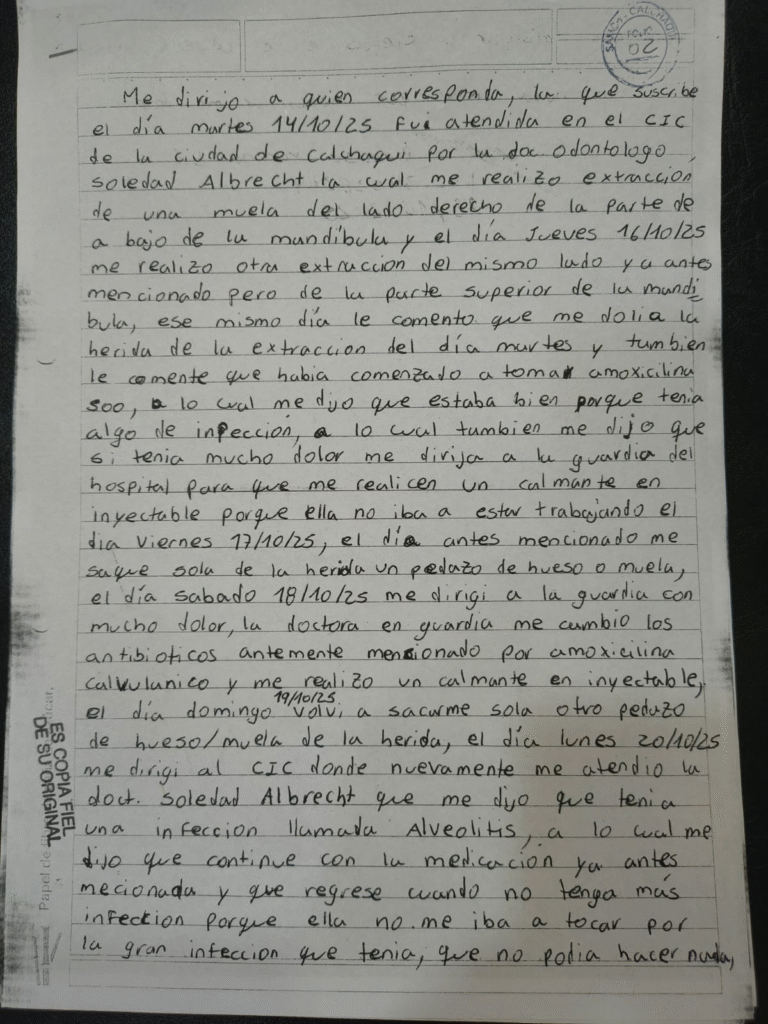 SAMCO - CALCHAQUI
FOLIO
02
Me dirijo a quien corresponda, la que suscribe
el día martes 14/10/25 fui atendida en el CIC
de la ciudad de Calchaqui por la doc odontologo,
Soledad Albrecht la cual me realizo extraccion
de una muela del lado derecho de la parte de
a bajo de la mandíbula y el día Jueves 16/10/25
me realizo otra extraccion del mismo lado ya antes
mencionado pero de la parte superior de la mandi
bula, ese mismo día le comento que me dolia la
herida de la extraccion del día martes y tambien
le comente que habia comenzado a tomar amoxicilina
500, a lo cual me dijo que estaba bien porque tenia
algo de infeccion, a lo cual tambien me dijo que
si tenia mucho dolor me dirija a la guardia del
hospital para que me realicen un calmante en
inyectable porque ella no iba a estar trabajando el
dia Viernes 17/10/25, el día antes mencionado me
saque sola de la herida un pedazo de hueso o muela,
el día sabado 18/10/25 me dirigi a la guardia con
mucho dolor, la doctora en guardia me cambio los
antibioticos antemente mencionado por amoxicilina
calvulanico y me realizo un calmante en inyectable,
el día domingo 19/10/25 volvi a sacarme sola otro pedazo
de hueso/muela de la herida, el día lunes 20/10/25
me dirigi al CIC donde nuevamente me atendio la
doct. Soledad Albrecht que me dijo que tenia
una infeccion llamada Alveolitis, a lo cual me
dijo que continue con la medicacion ya antes
mecionada y que regrese cuando no tenga más
infeccion porque ella no me iba a tocar por
la gran infeccion que tenia, que no podia hacer nada,
ES COPIA FIEL
DE SU ORIGINAL
Papel de